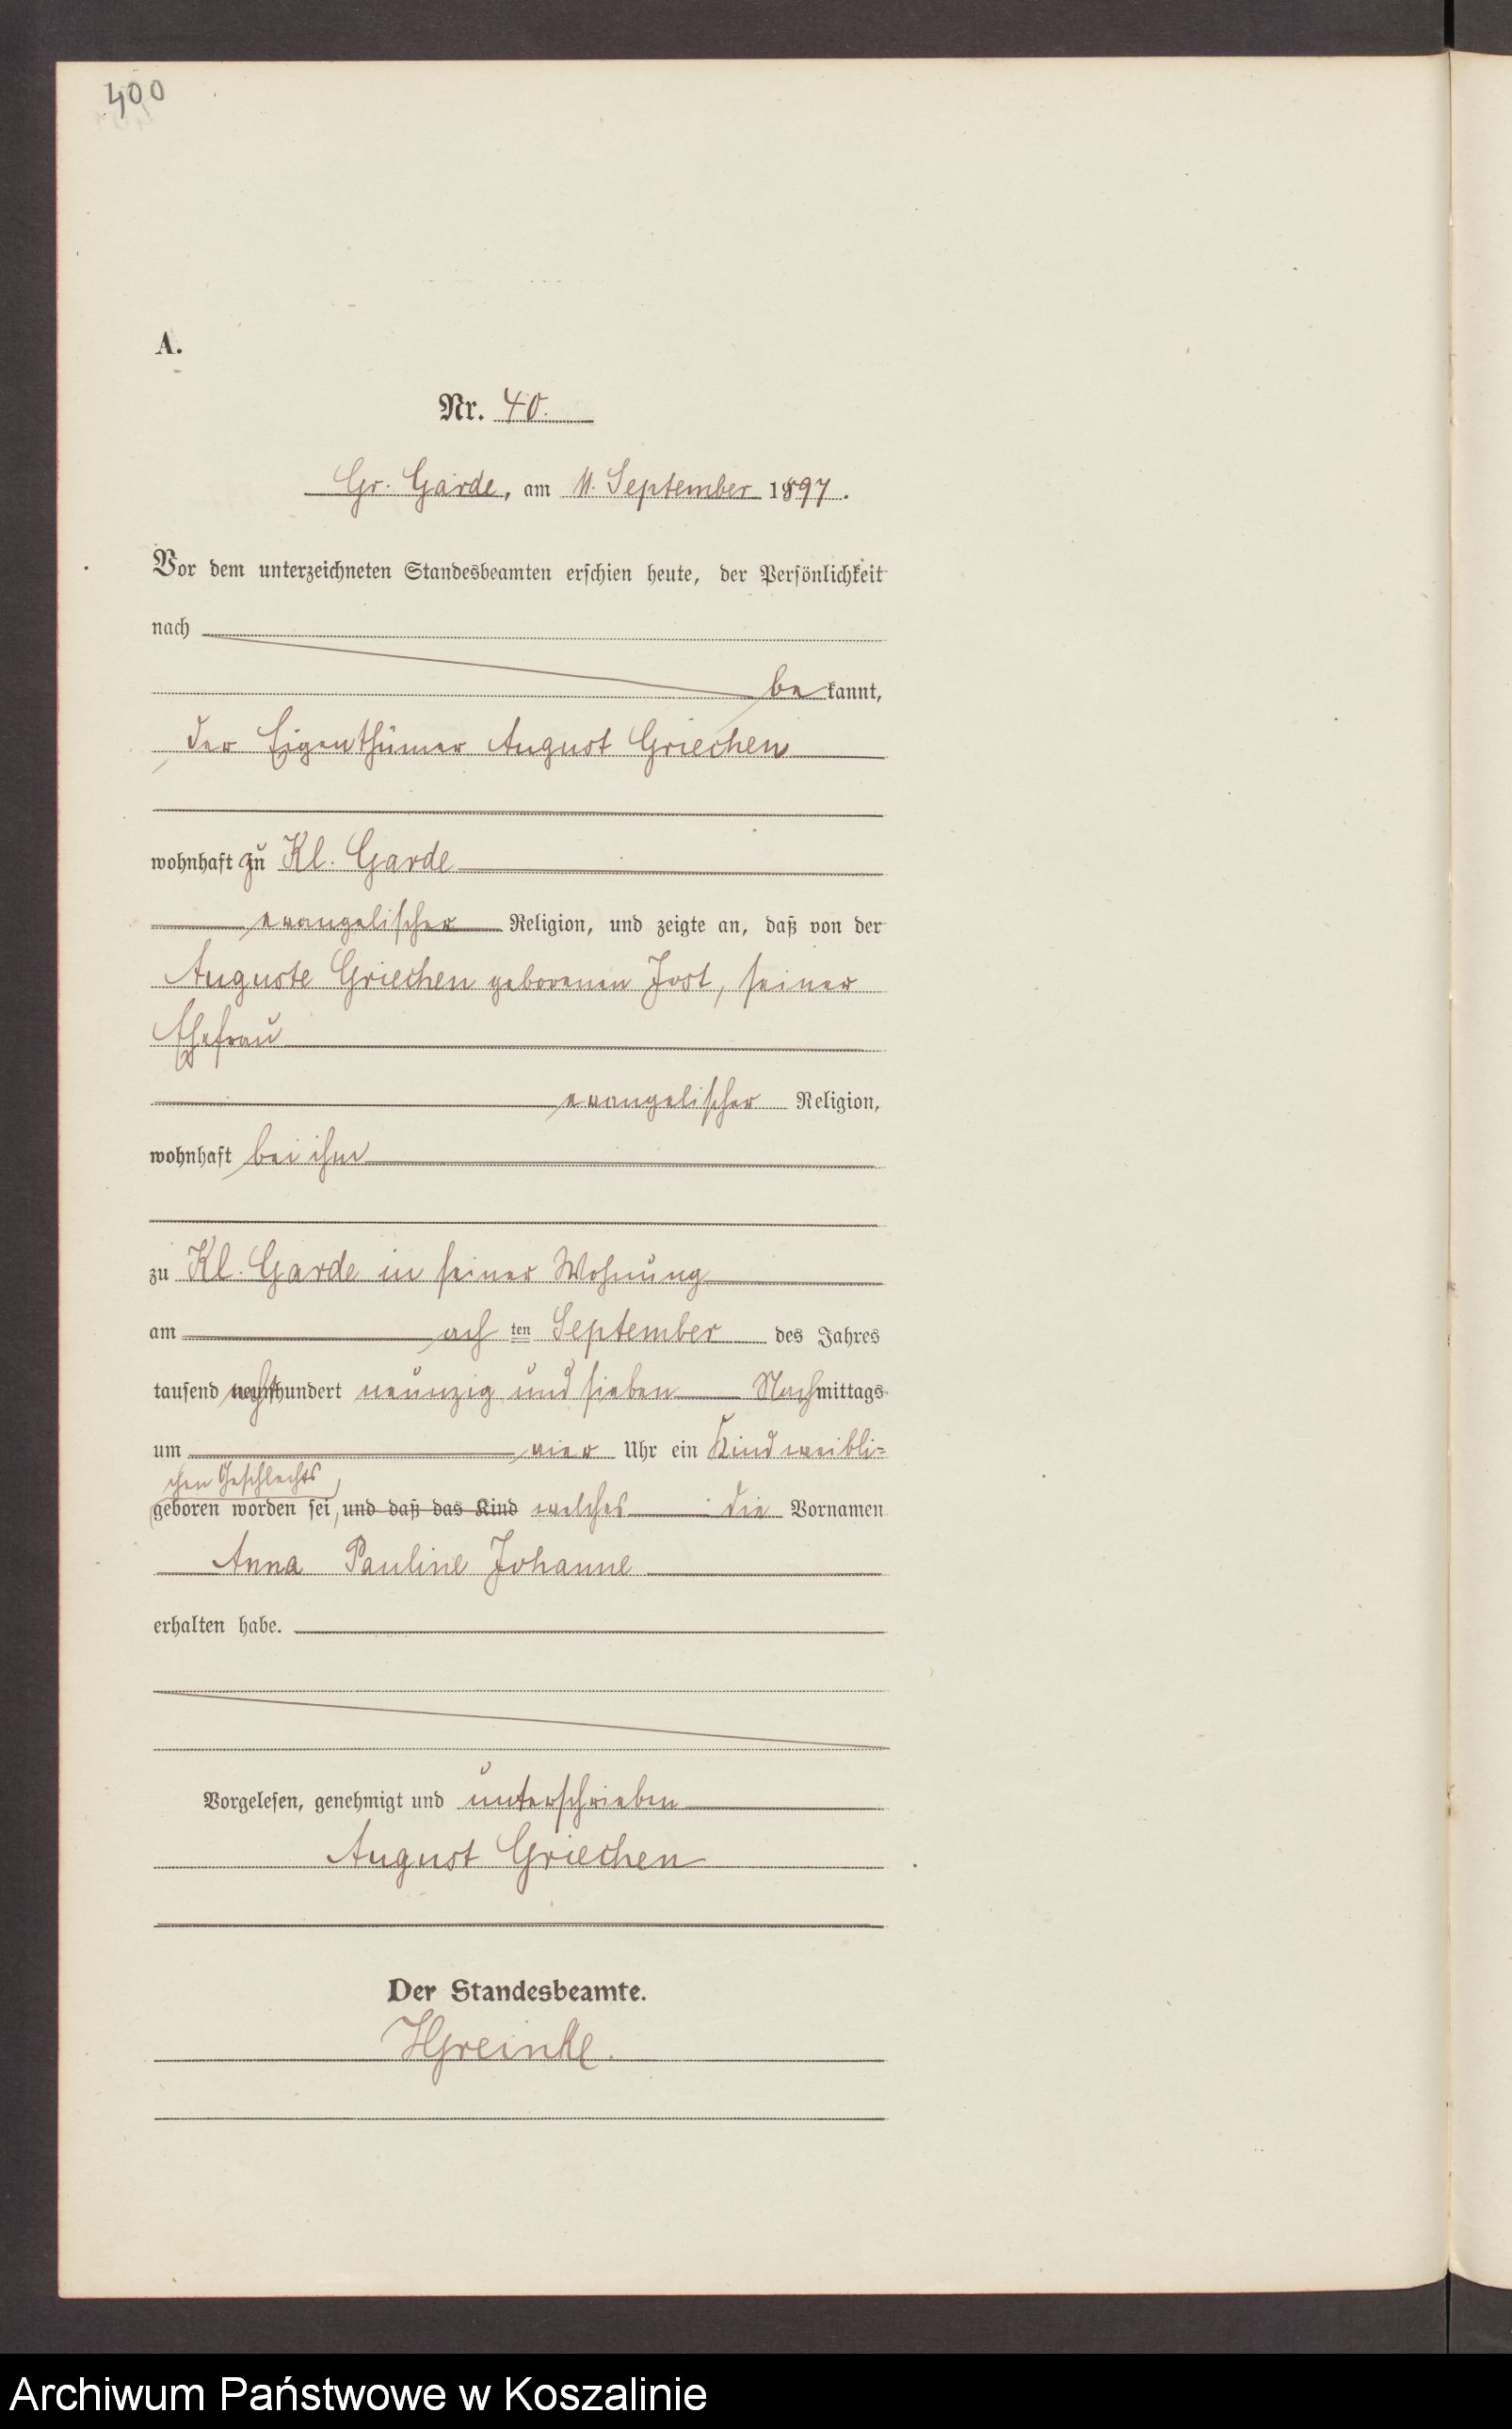 400
A.
Nr. 40.
Gr. Garde, am 11. September 1897.
Vor dem unterzeichneten Standesbeamten erschien heute, der Persönlichkeit
nach
be kannt,
der Eigenthümer August Griechen
wohnhaft zu Kl. Garde
evangelischer Religion, und zeigte an, daß von der
Auguste Griechen geborenen Jost, seiner
Ehefrau
evangelischer Religion,
wohnhaft bei ihm
zu Kl. Garde in seiner Wohnung
am ach ten September des Jahres
tausend achthundert neunzig und sieben Nachmittags
um vier Uhr ein Kind weibli=
chen Geschlechts
geboren worden sei, und daß das Kind welches die Vornamen
Anna Pauline Johanne
erhalten habe.
Vorgelesen, genehmigt und unterschrieben
August Griechen
Der Standesbeamte.
HGreinke.
Archiwum Państwowe w Koszalinie